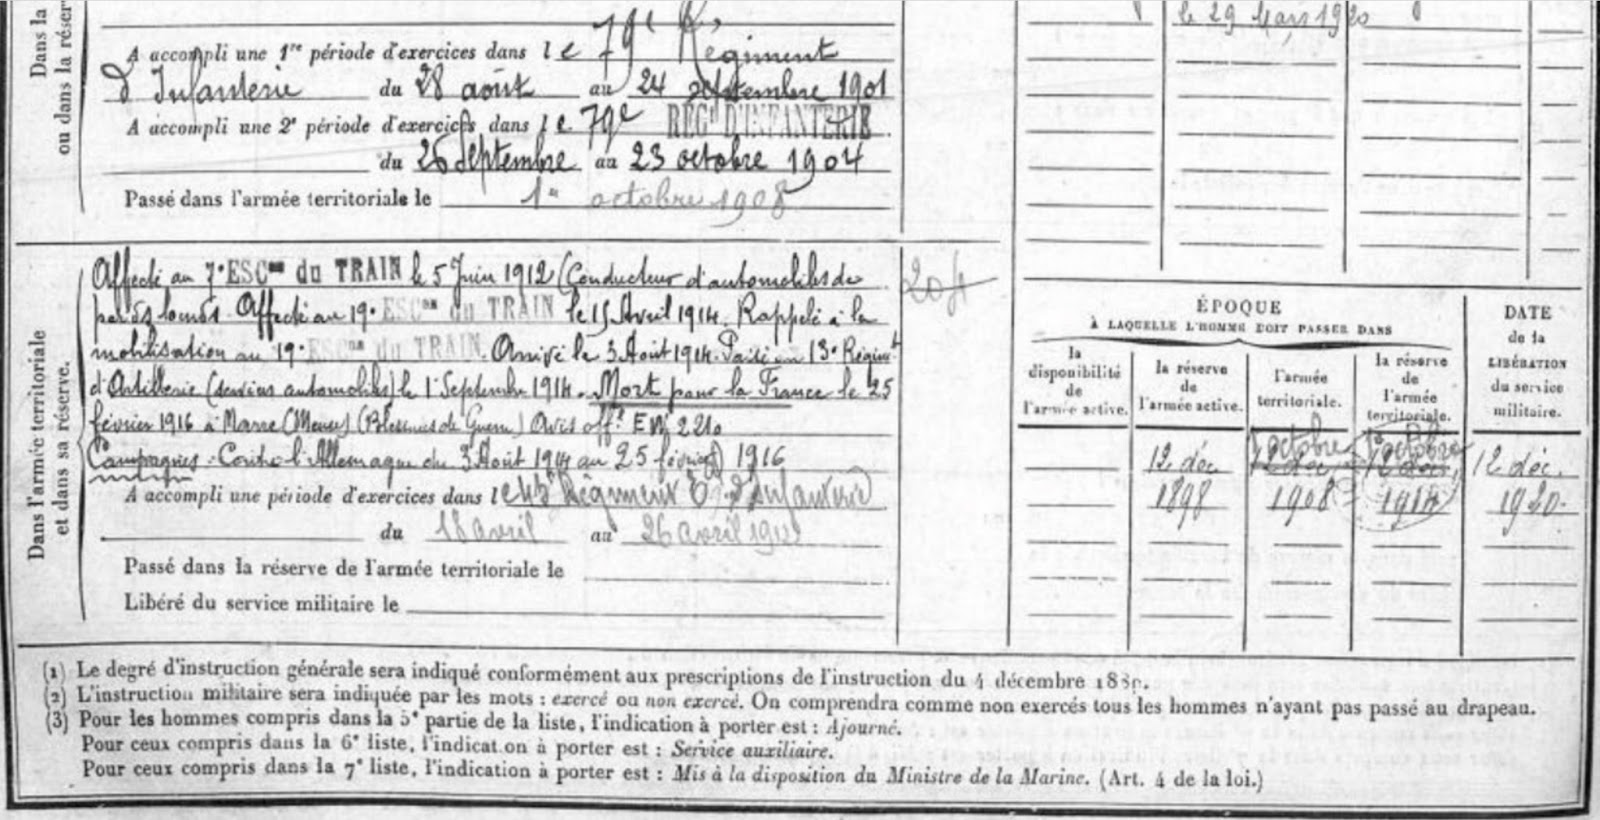 le 29 Mars 1920
Dans la
ou dans la réserve
79e R
A accompli une 1re période d'exercices dans le Régiment
d'Infanterie du 28 août au 24 septembre 1901
A accompli une 2e période d'exercices dans le 79e REGt D'INFANTERIE
du 26 Septembre au 23 octobre 1904
Passé dans l'armée territoriale le 1er octobre 1908
Dans l'armée territoriale
et dans sa réserve.
Affecté au 7e ESCon du TRAIN le 5 Juin 1912 (Conducteur d'automobiles de
poids lourds. Affecté au 19e ESCon du TRAIN le 15 Avril 1914. Rappelé à la
mobilisation au 19e ESCon du TRAIN. Arrivé le 3 Août 1914. Passé au 13e Régiment
d'Artillerie (services automobiles) le 1 Septembre 1914. Mort pour la France le 25
février 1916 à Marre (Meuse) (Blessures de Guerre) Avis offel EM 2210
Campagnes. Contre l'Allemagne du 3 Août 1914 au 25 février 1916
A accompli une période d'exercices dans le Régiment d'Infanterie
du 18 avril au 26 avril
Passé dans la réserve de l'armée territoriale le
Libéré du service militaire le
ÉPOQUE
À LAQUELLE L'HOMME DOIT PASSER DANS
la
disponibilité
de
l'armée active.
la réserve
de
l'armée active.
l'armée
territoriale.
la réserve
de
l'armée
territoriale.
DATE
de la
LIBÉRATION
du service
militaire.
12 déc. 1898
1 octobre 1908
1er octobre 1914
12 déc. 1920.
(1) Le degré d'instruction générale sera indiqué conformément aux prescriptions de l'instruction du 4 décembre
(2) L'instruction militaire sera indiquée par les mots : exercé ou non exercé. On comprendra comme non exercés tous les hommes n'ayant pas passé au drapeau.
(3) Pour les hommes compris dans la 5e partie de la liste, l'indication à porter est : Ajourné.
Pour ceux compris dans la 6e liste, l'indication à porter est : Service auxiliaire.
Pour ceux compris dans la 7e liste, l'indication à porter est : Mis à la disposition du Ministre de la Marine. (Art. 4 de la loi.)